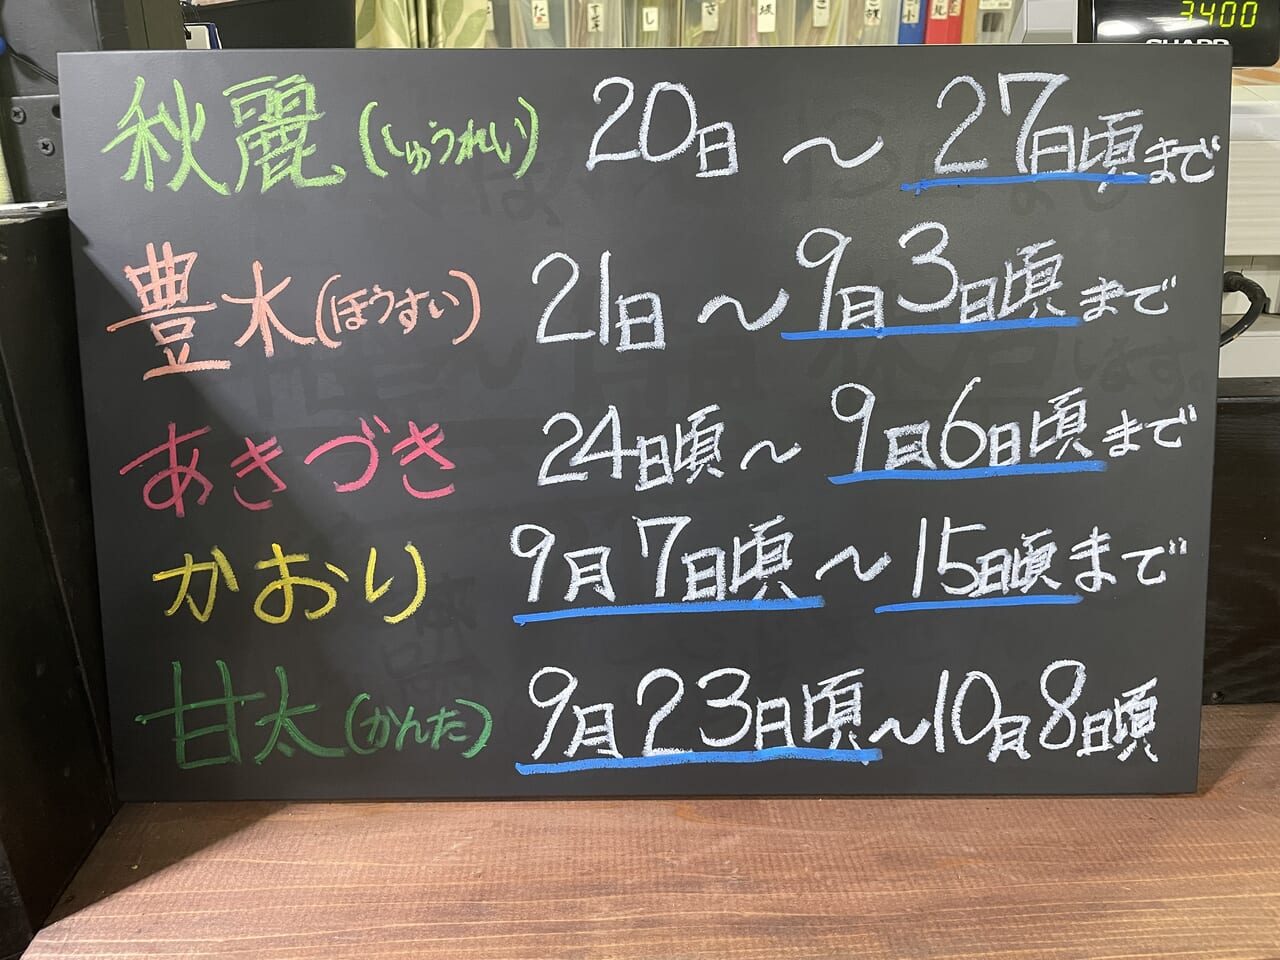 3400
SHARP
秋麗(しゅうれい) 20日 〜 27日頃まで
豊水(ほうすい) 21日 〜 9月3日頃まで
あきづき 24日頃〜 9日6日頃まで
かおり 9月7日頃〜15日頃まで
甘太(かんた) 9月23日頃〜10月8日頃